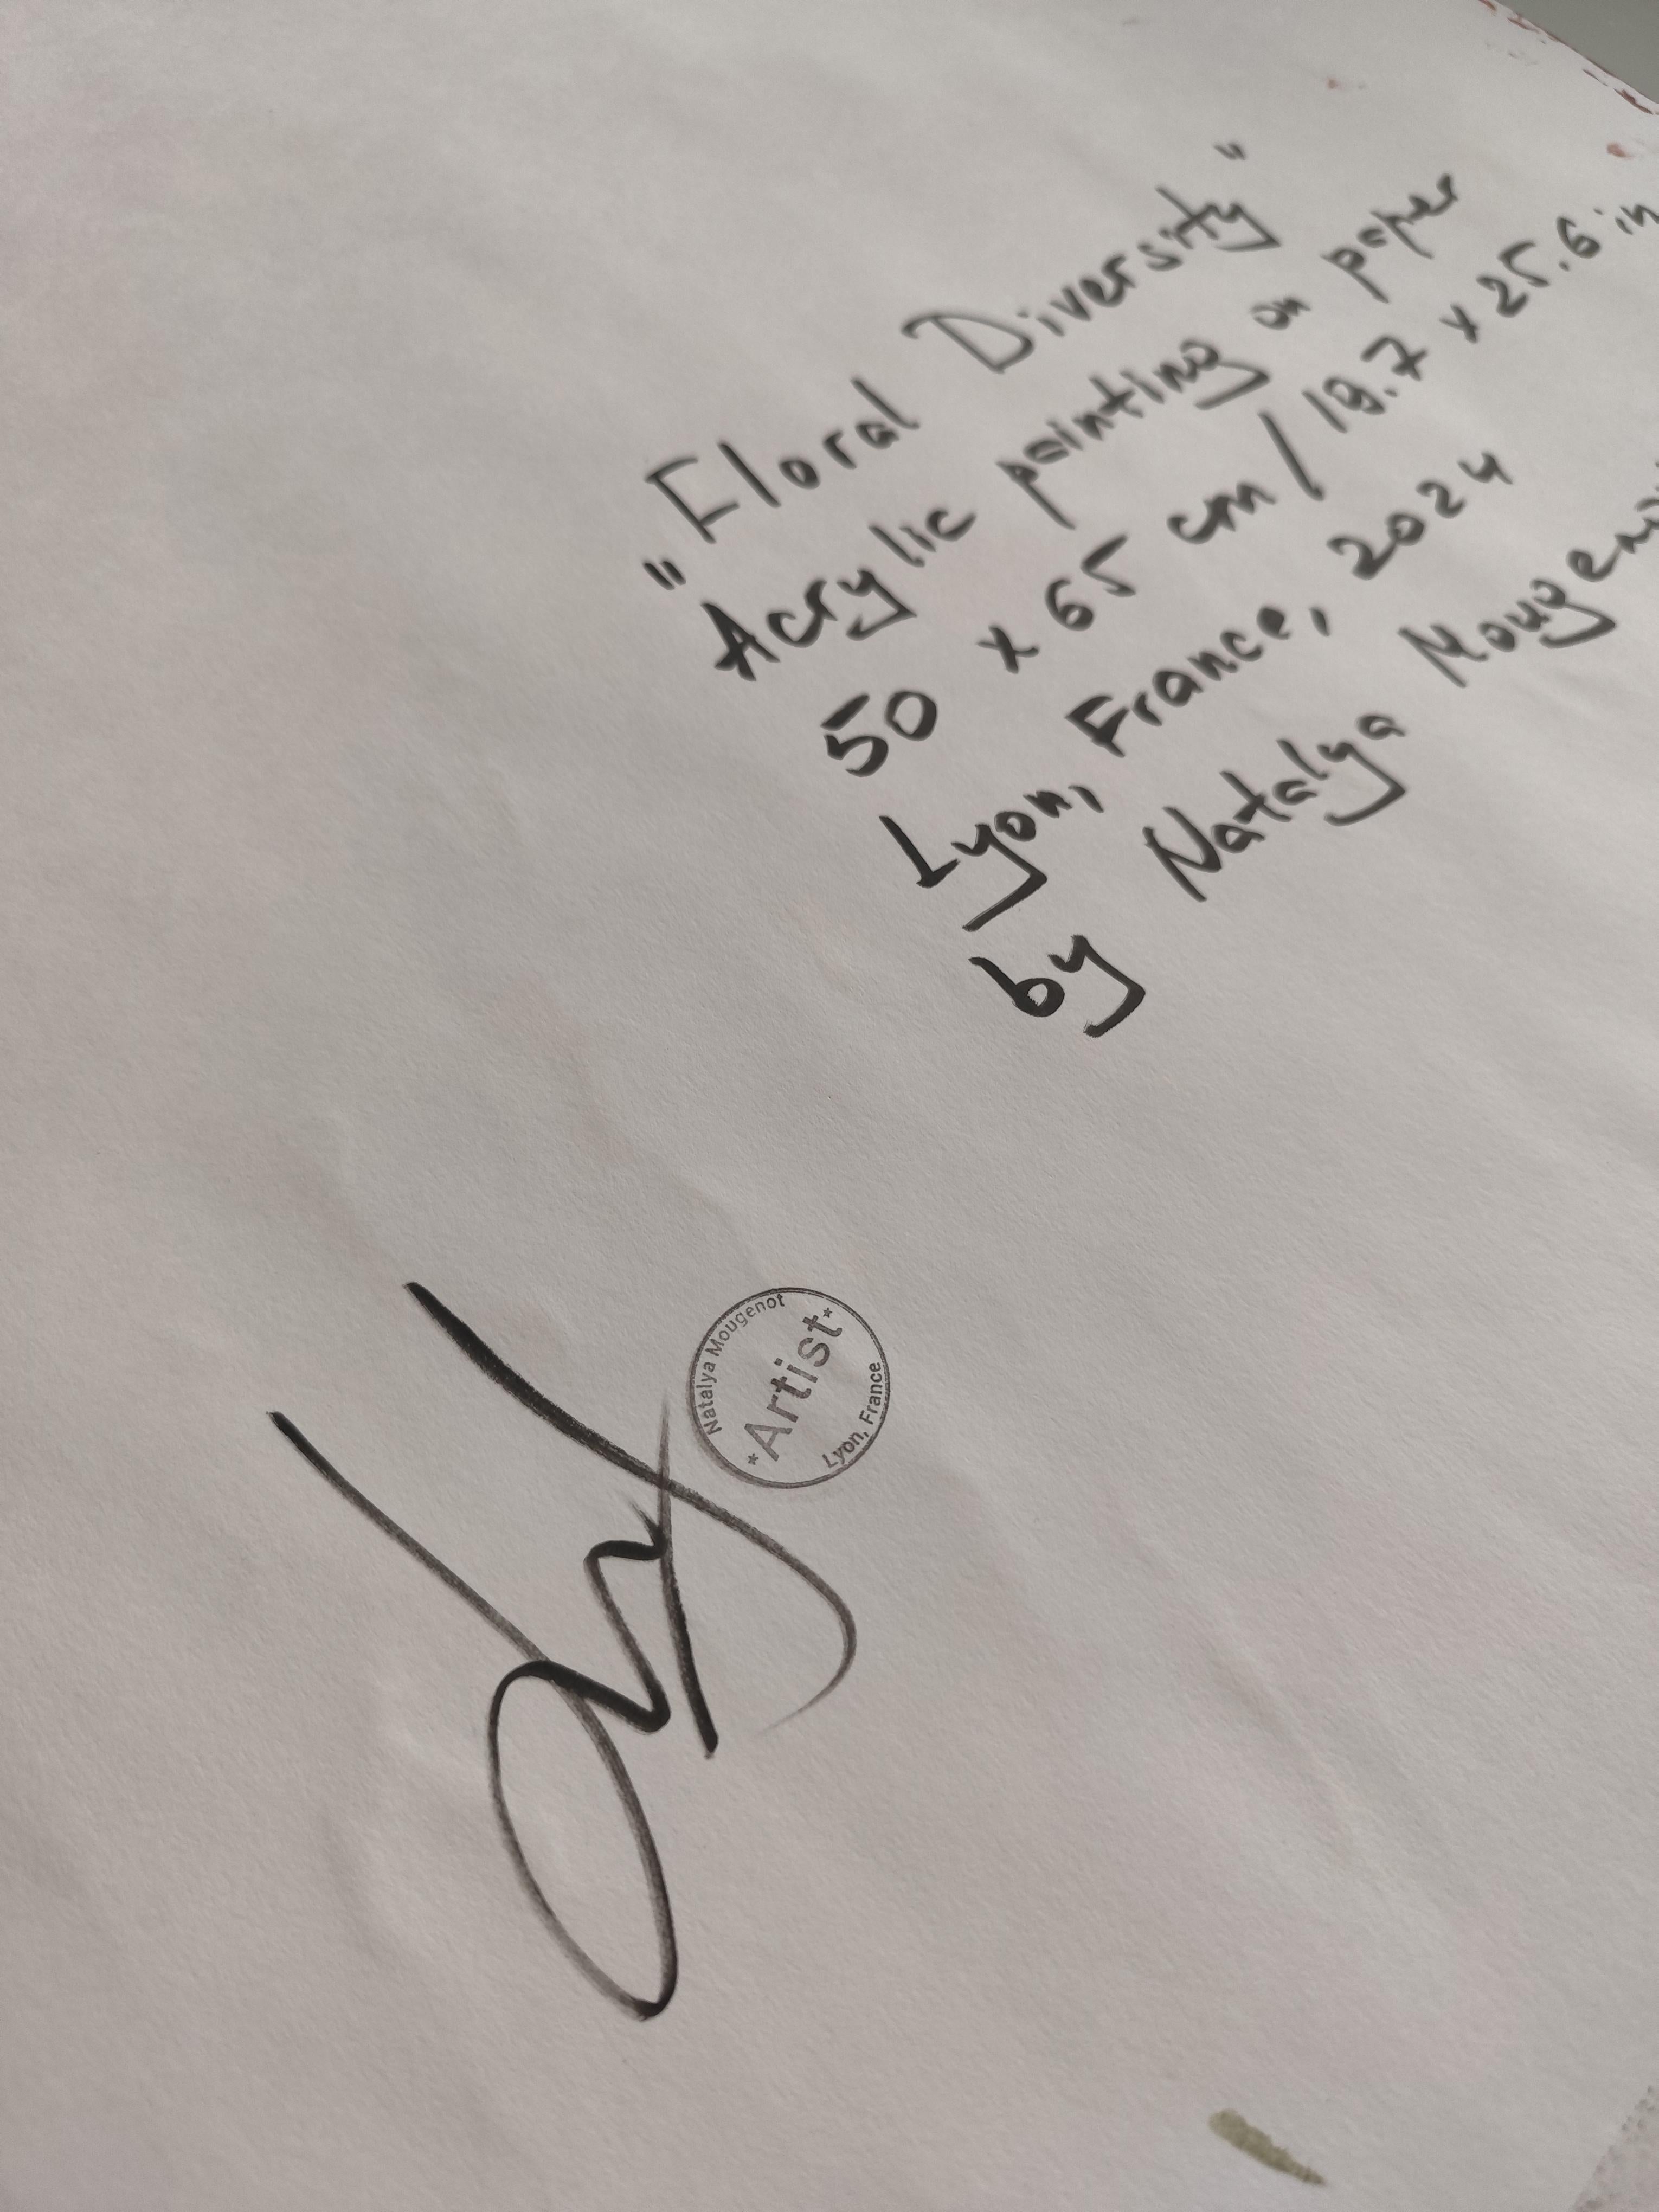 "Floral Diversity"
Acrylic painting on paper
50 x 65 cm / 19.7 x 25.6 in
Lyon, France, 2024
by Natalya
Natalya Mougenot
*Artist*
Lyon, France